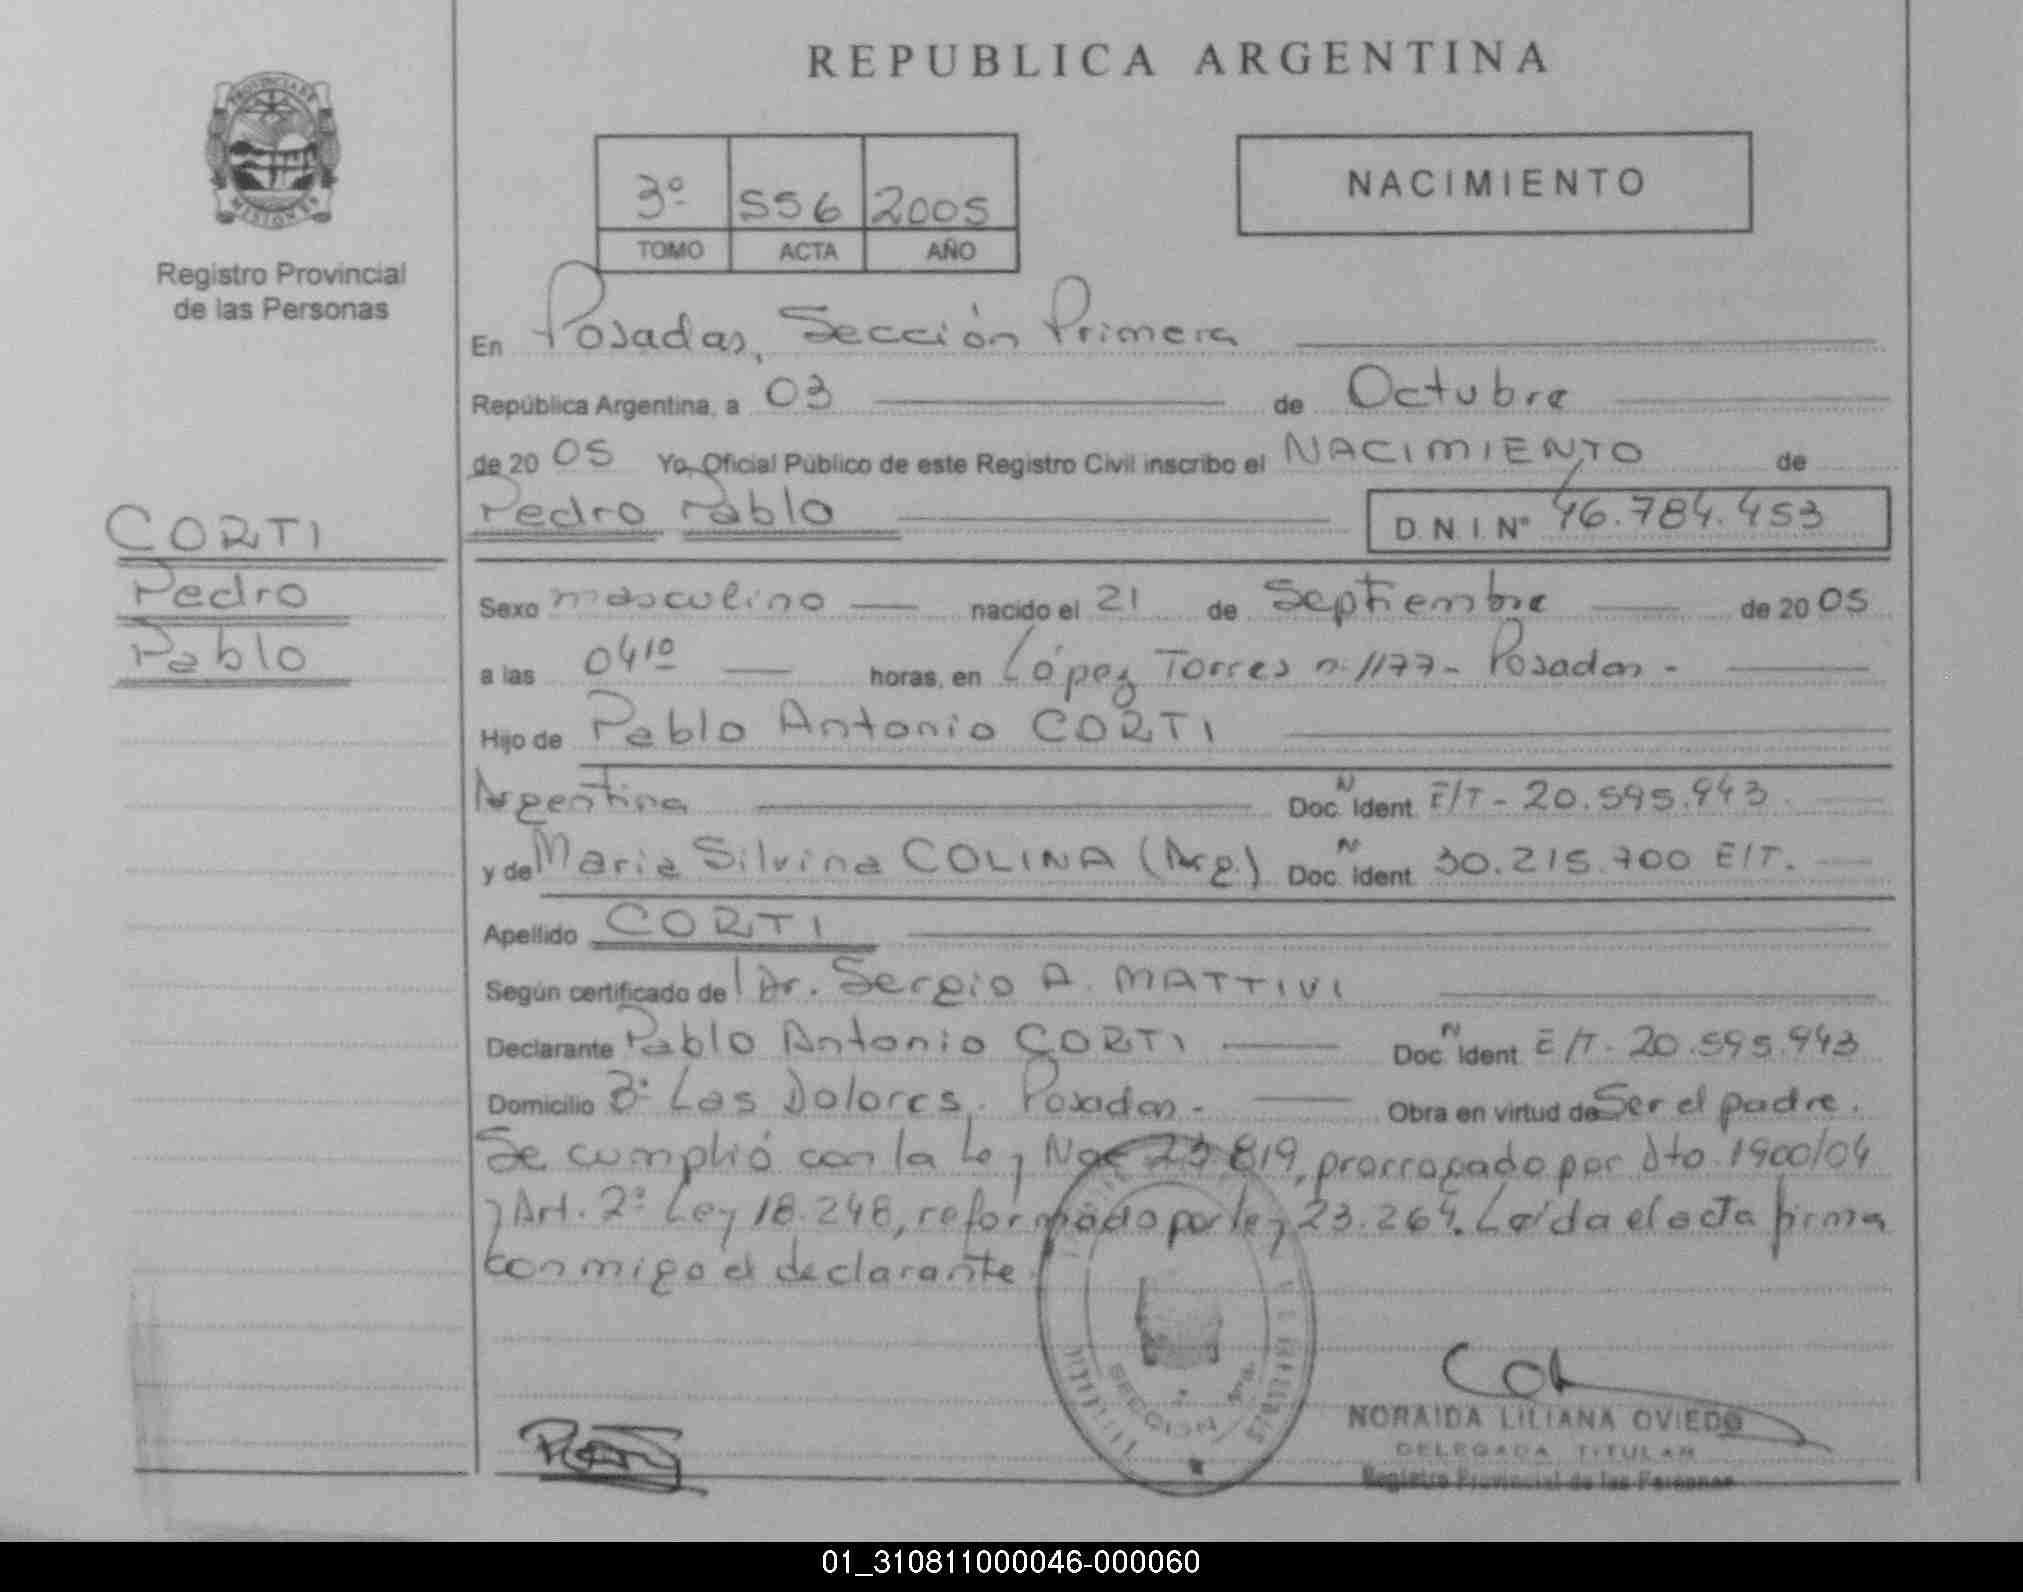 REPUBLICA ARGENTINA
PROVINCIA DE
MISIONES
Registro Provincial
de las Personas
3º 556 2005
TOMO ACTA AÑO
NACIMIENTO
En Posadas, Sección Primera
República Argentina, a 03 de Octubre
de 20 05 Yo, Oficial Público de este Registro Civil inscribo el NACIMIENTO de
Pedro Pablo D.N.I. Nº 46.784.453
CORTI
Pedro
Pablo
Sexo masculino nacido el 21 de Septiembre de 20 05
a las 04¹⁰ horas, en López Torres n° 1177 - Posadas -
Hijo de Pablo Antonio CORTI
Argentina Doc. Ident. N E/T - 20.595.943
y de Maria Silvina COLINA (Arg.) Doc. Ident. N 30.215.700 E/T.
Apellido CORTI
Según certificado de Dr. Sergio A. MATTIVI
Declarante Pablo Antonio CORTI Doc. Ident. N E/T - 20.595.943
Domicilio Bº Los Dolores, Posadas - Obra en virtud de Ser el padre.
Se cumplió con la Ley Nac 23.819, prorrogado por Dto. 1900/04
y Art. 2º Ley 18.248, reformado por ley 23.264. Leída el acta firma
conmigo el declarante
SECCION 1ra.
NORAIDA LILIANA OVIEDO
DELEGADA TITULAR
Registro Provincial de las Personas
01_310811000046-000060